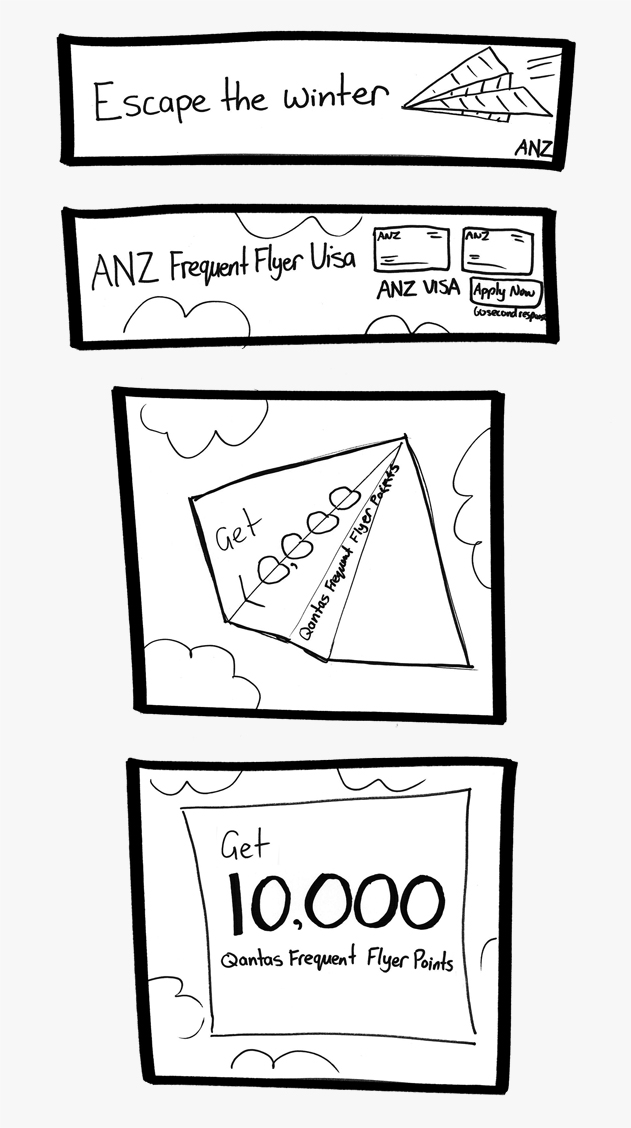 Escape the winter
ANZ
ANZ Frequent Flyer Visa
ANZ
ANZ
ANZ VISA
Apply Now
60 second response
Get
10,000
Qantas Frequent Flyer Points
Get
10,000
Qantas Frequent Flyer Points